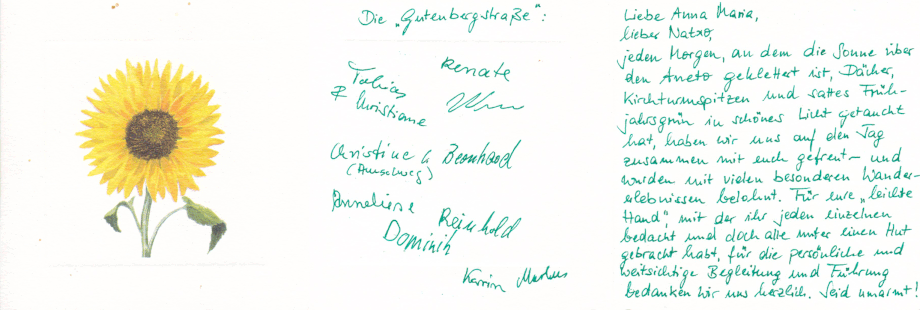 Die „Gutenbergstraße“:
Renate
Tobias
& Christiane
Christine & Bernhard
(Amselweg)
Anneliese
Reinhold
Dominik
Karin Markus
Liebe Anna Maria,
lieber Natxo,
jeden Morgen, an dem die Sonne über
den Aneto geklettert ist, Dächer,
Kirchturmspitzen und sattes Früh-
jahrsgrün in schönes Licht getaucht
hat, haben wir uns auf den Tag
zusammen mit euch gefreut – und
wurden mit vielen besonderen Wander-
erlebnissen belohnt. Für eure „leichte
Hand“, mit der ihr jeden einzelnen
bedacht und doch alle unter einen Hut
gebracht habt, für die persönliche und
weitsichtige Begleitung und Führung
bedanken wir uns herzlich. Seid umarmt!